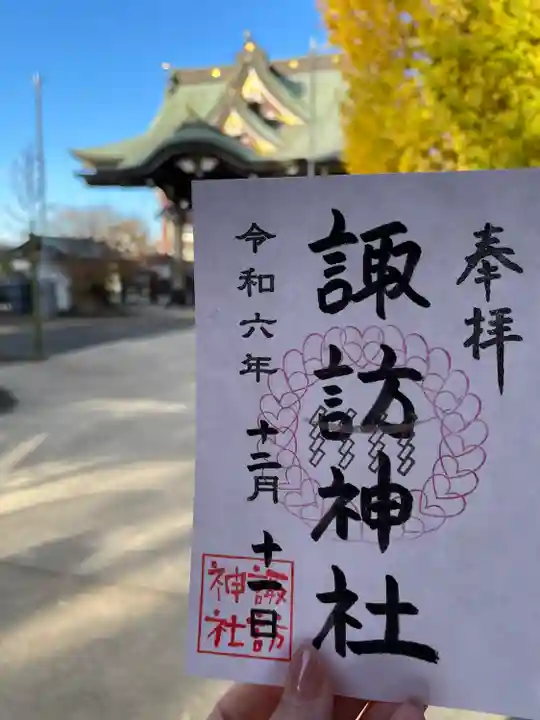 奉拝
諏訪神社
令和六年 十二月 十一日
諏訪
神社